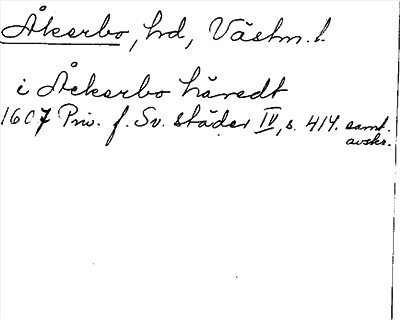 Åkerbo, hd, Västm. l.
i Åckerbo häredt
1607 Priv. f. Sv. städer IV, s. 414. samt.
avskr.